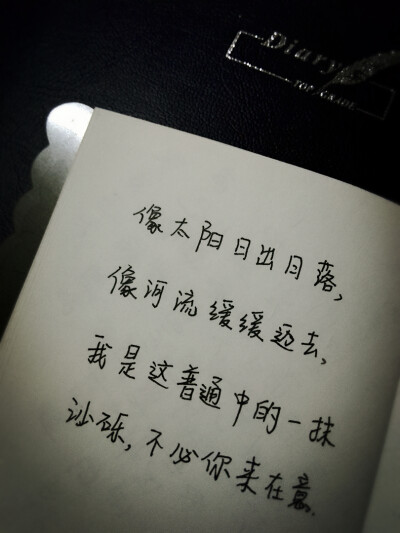 Diary
像太阳日出日落,
像河流缓缓远去,
我是这普通中的一抹
沙砾,不必你来在意.